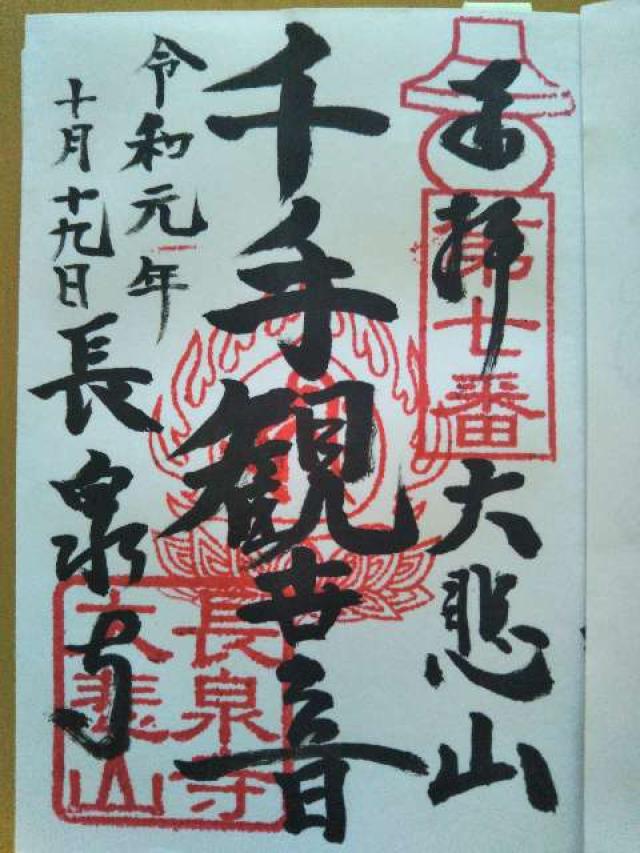 奉拝
第七番
大悲山
千手観世音
令和元年
十月十九日
長泉寺
長泉寺
大悲山